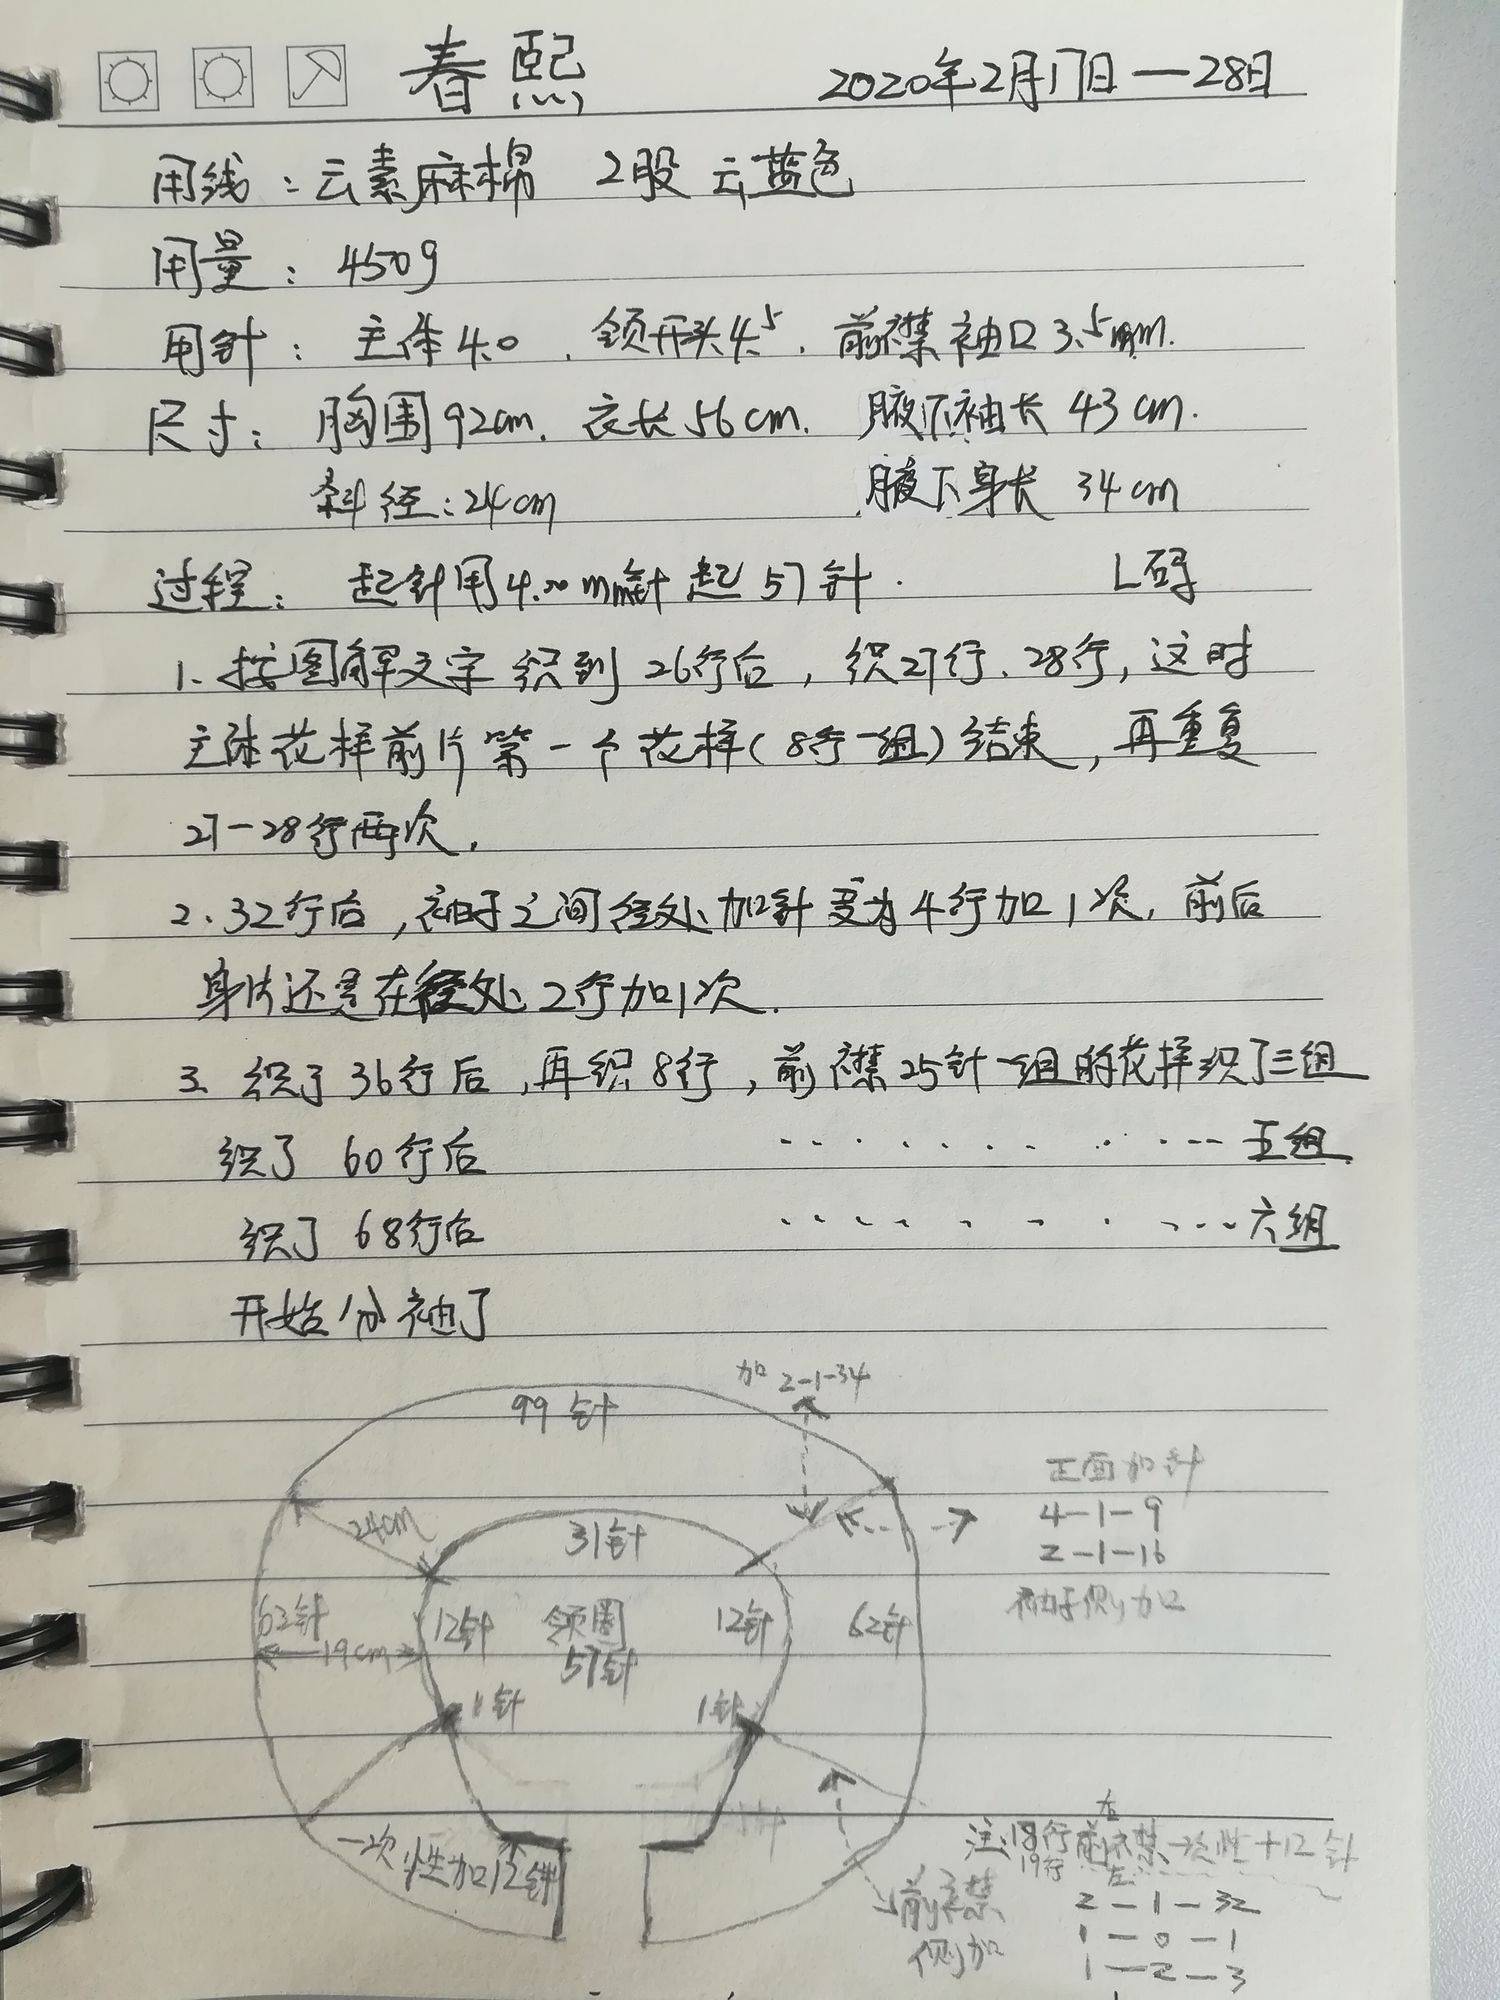 春熙 2020年2月17日—28日
用线：云素麻棉 2股 云蓝色
用量：450g
用针：主体4.0、领开头4.5、前襟袖口3.5mm.
尺寸：胸围92cm. 衣长56cm. 腋下袖长43cm.
斜径：24cm 腋下身长 34cm
过程：起针用4.00mm针起57针. L码
1、按图解文字织到26行后，织27行、28行，这时
主体花样前片第一个花样(8行一组)结束，再重复
27-28行两次.
2、32行后，袖子之间径处加针变为4行加1次，前后
身片还是在径处2行加1次.
3、织了36行后，再织8行，前襟25针一组的花样织了三组
织了60行后 五组
织了68行后 六组
开始分袖了
加 2-1-34
99针
正面加针
4-1-9
2-1-16
袖子侧加
24cm
31针
62针 12针 领圈 12针 62针
19cm 57针
1针 1针
一次性加12针
注：18行前衣襟一次性+12针
19行
右
左
前衣襟
侧加
2-1-32
1-0-1
1-2-3